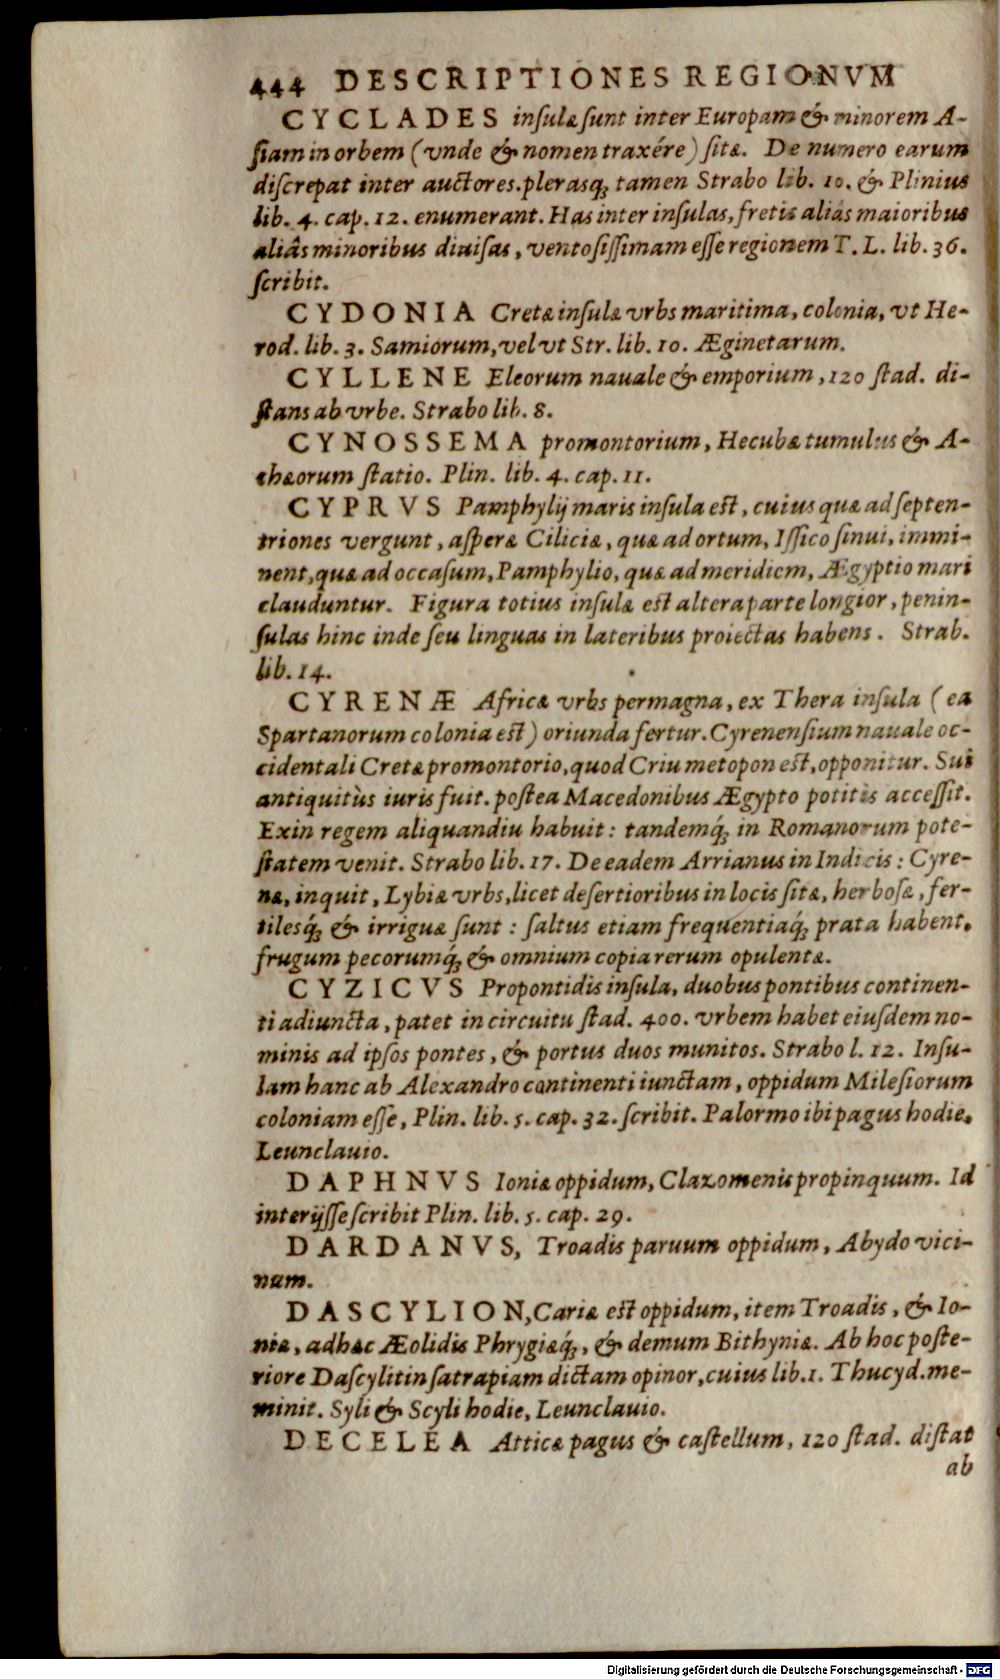 444 DESCRIPTIONES REGIONVM
CYCLADES inſulæ ſunt inter Europam & minorem A-
ſiam in orbem (vnde & nomen traxére) ſitæ. De numero earum
diſcrepat inter auctores. plerasq; tamen Strabo lib. 10. & Plinius
lib. 4. cap. 12. enumerant. Has inter inſulas, fretis aliâs maioribus
aliâs minoribus diuiſas, ventoſiſſimam eſſe regionem T. L. lib. 36.
ſcribit.
CYDONIA Cretæ inſulæ vrbs maritima, colonia, vt He-
rod. lib. 3. Samiorum, vel vt Str. lib. 10. Æginetarum.
CYLLENE Eleorum nauale & emporium, 120 ſtad. di-
ſtans ab vrbe. Strabo lib. 8.
CYNOSSEMA promontorium, Hecubæ tumulus & A-
chæorum ſtatio. Plin. lib. 4. cap. 11.
CYPRVS Pamphylij maris inſula eſt, cuius quæ ad ſepten-
triones vergunt, aſperæ Ciliciæ, quæ ad ortum, Iſſico ſinui, immi-
nent, quæ ad occaſum, Pamphylio, quæ ad meridiem, Ægyptio mari
clauduntur. Figura totius inſulæ eſt altera parte longior, penin-
ſulas hinc inde ſeu linguas in lateribus proiectas habens. Strab.
lib. 14.
CYRENÆ Africæ vrbs permagna, ex Thera inſula (ea
Spartanorum colonia eſt) oriunda fertur. Cyrenenſium nauale oc-
cidentali Cretæ promontorio, quod Criu metopon eſt, opponitur. Sui
antiquitùs iuris fuit. poſtea Macedonibus Ægypto potitis acceſſit.
Exin regem aliquandiu habuit: tandemq́; in Romanorum pote-
ſtatem venit. Strabo lib. 17. De eadem Arrianus in Indicis: Cyre-
næ, inquit, Lybiæ vrbs, licet deſertioribus in locis ſitæ, herboſæ, fer-
tilesq́; & irriguæ ſunt: ſaltus etiam frequentiaq́; prata habent,
frugum pecorumq́; & omnium copia rerum opulentæ.
CYZICVS Propontidis inſula, duobus pontibus continen-
ti adiuncta, patet in circuitu ſtad. 400. vrbem habet eiuſdem no-
minis ad ipſos pontes, & portus duos munitos. Strabo l. 12. Inſu-
lam hanc ab Alexandro continenti iunctam, oppidum Mileſiorum
coloniam eſſe, Plin. lib. 5. cap. 32. ſcribit. Palormo ibi pagus hodie,
Leunclauio.
DAPHNVS Ioniæ oppidum, Clazomenis propinquum. Id
interijſſe ſcribit Plin. lib. 5. cap. 29.
DARDANVS, Troadis paruum oppidum, Abydo vici-
num.
DASCYLION, Cariæ eſt oppidum, item Troadis, & Io-
niæ, adhæc Æolidis Phrygiæq́;, & demum Bithyniæ. Ab hoc poſte-
riore Daſcylitin ſatrapiam dictam opinor, cuius lib. 1. Thucyd. me-
minit. Syli & Scyli hodie, Leunclauio.
DECELEA Atticæ pagus & caſtellum, 120 ſtad. diſtat
ab
Digitalisierung gefördert durch die Deutsche Forschungsgemeinschaft - DFG